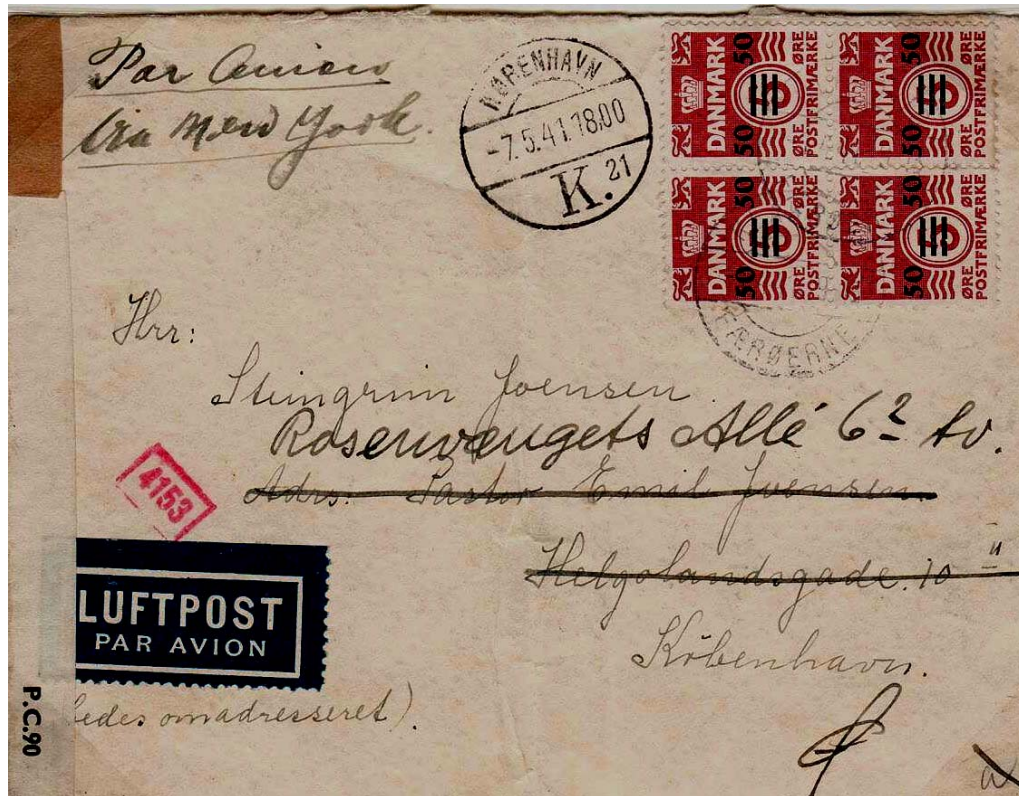 Par Avion
via New York.
KØBENHAVN
-7.5.41.18.00
K. 21
DANMARK 50 50 5 ØRE POSTFRIMÆRKE
DANMARK 50 50 5 ØRE POSTFRIMÆRKE
DANMARK 50 50 5 ØRE POSTFRIMÆRKE
DANMARK 50 50 5 ØRE POSTFRIMÆRKE
FÆRØERNE
Hrr:
Steingrim Joensen
Rosenvængets Allé 6² tv.
Adrs: Pastor Emil Joensen
Helgolandsgade. 10 II
København.
4153
LUFTPOST
PAR AVION
bedes omadresseret).
P.C.90